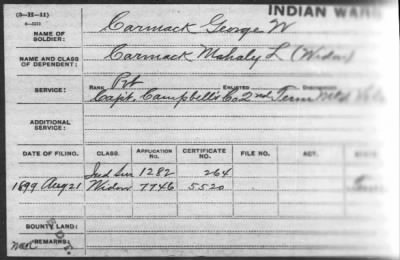 (3-H-11)
INDIAN WARS
NAME OF SOLDIER: Carmack George W
NAME AND CLASS OF DEPENDENT: Carmack Mahaly L (Widow)
SERVICE: RANK Pvt ENLISTED
Capt. Campbell's Co 2nd Tenn Mtd Vols
ADDITIONAL SERVICE:
DATE OF FILING. CLASS. APPLICATION No. CERTIFICATE No. FILE NO. ACT.
Ind Sur 1282 264
1899 Aug 21 Widow 7746 5520
BOUNTY LAND:
REMARKS: